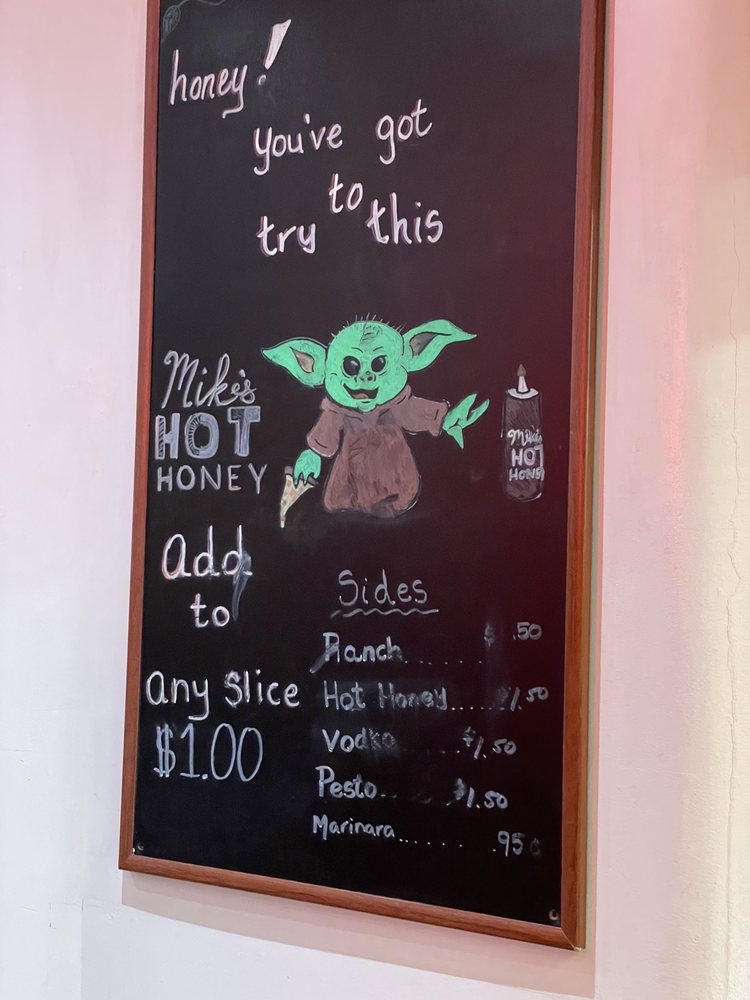 honey!
you've got
to
try this
Mike's
HOT
HONEY
Mike's
HOT
HONEY
Add
to
any Slice
$1.00
Sides
Ranch...... $ .50
Hot Honey.... $1.50
Vodka...... $1.50
Pesto..... $1.50
Marinara...... .95¢